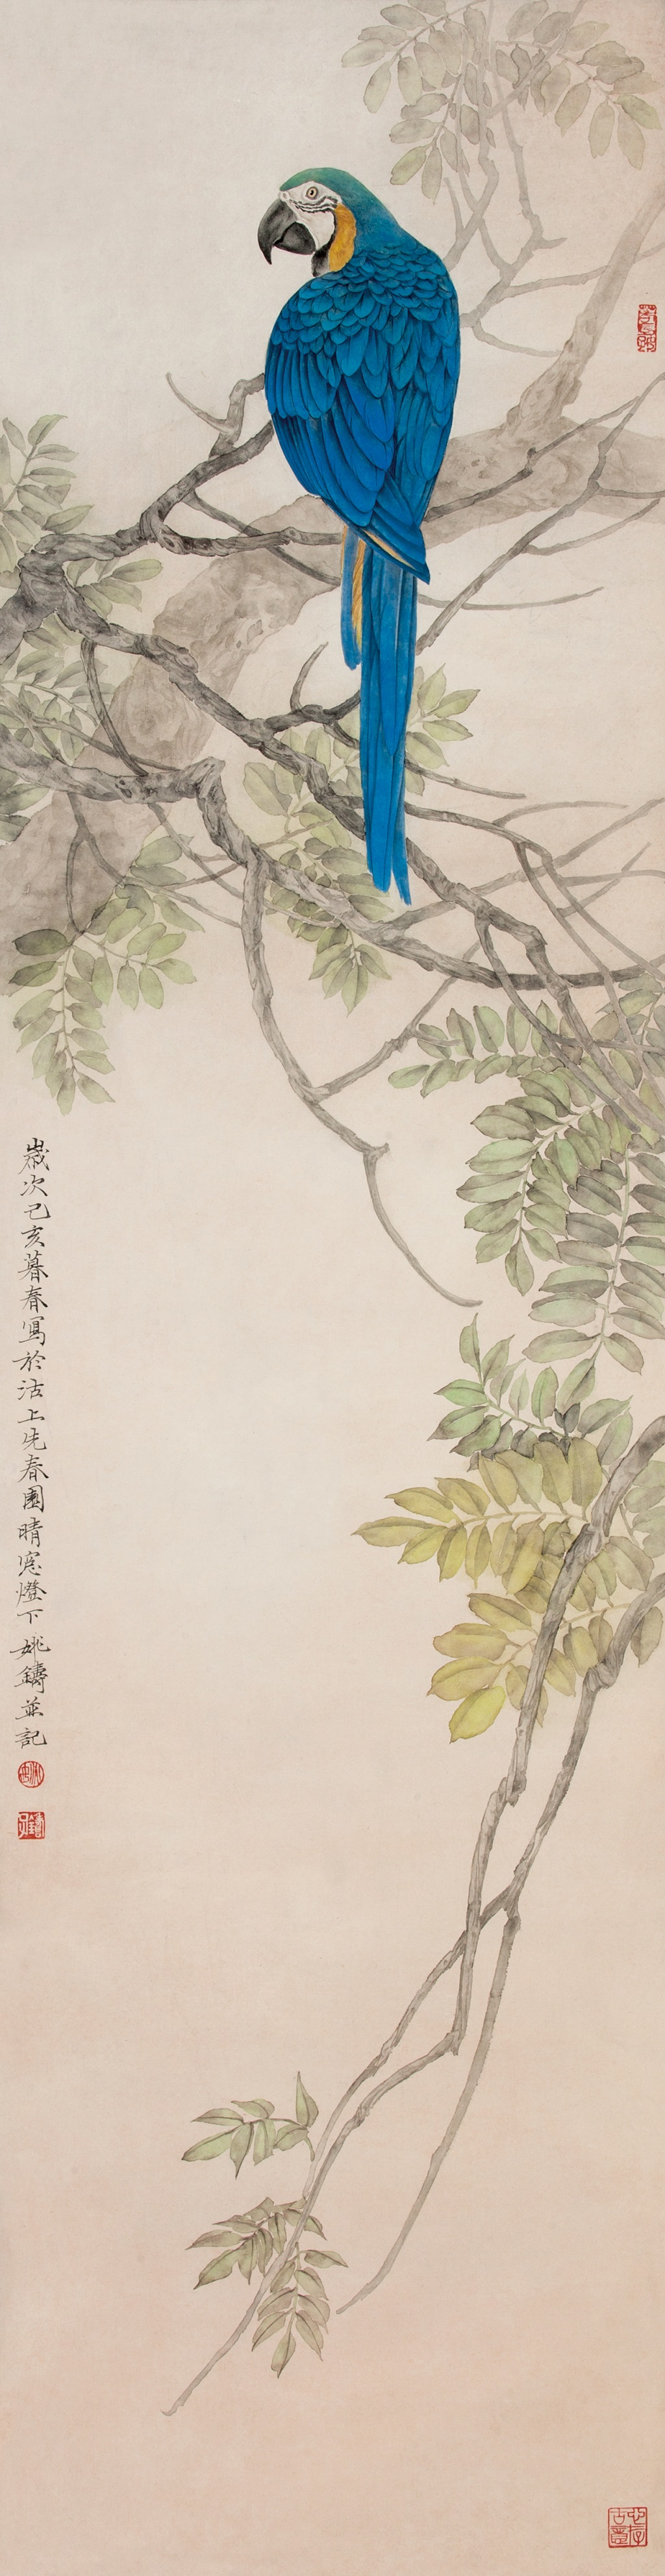 歲次己亥暮春寫於沽上先春園晴窓燈下姚鑄並記